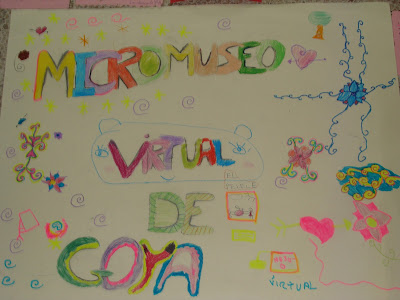 MICROMUSEO
VIRTUAL
DE
GOYA
VIRTUAL